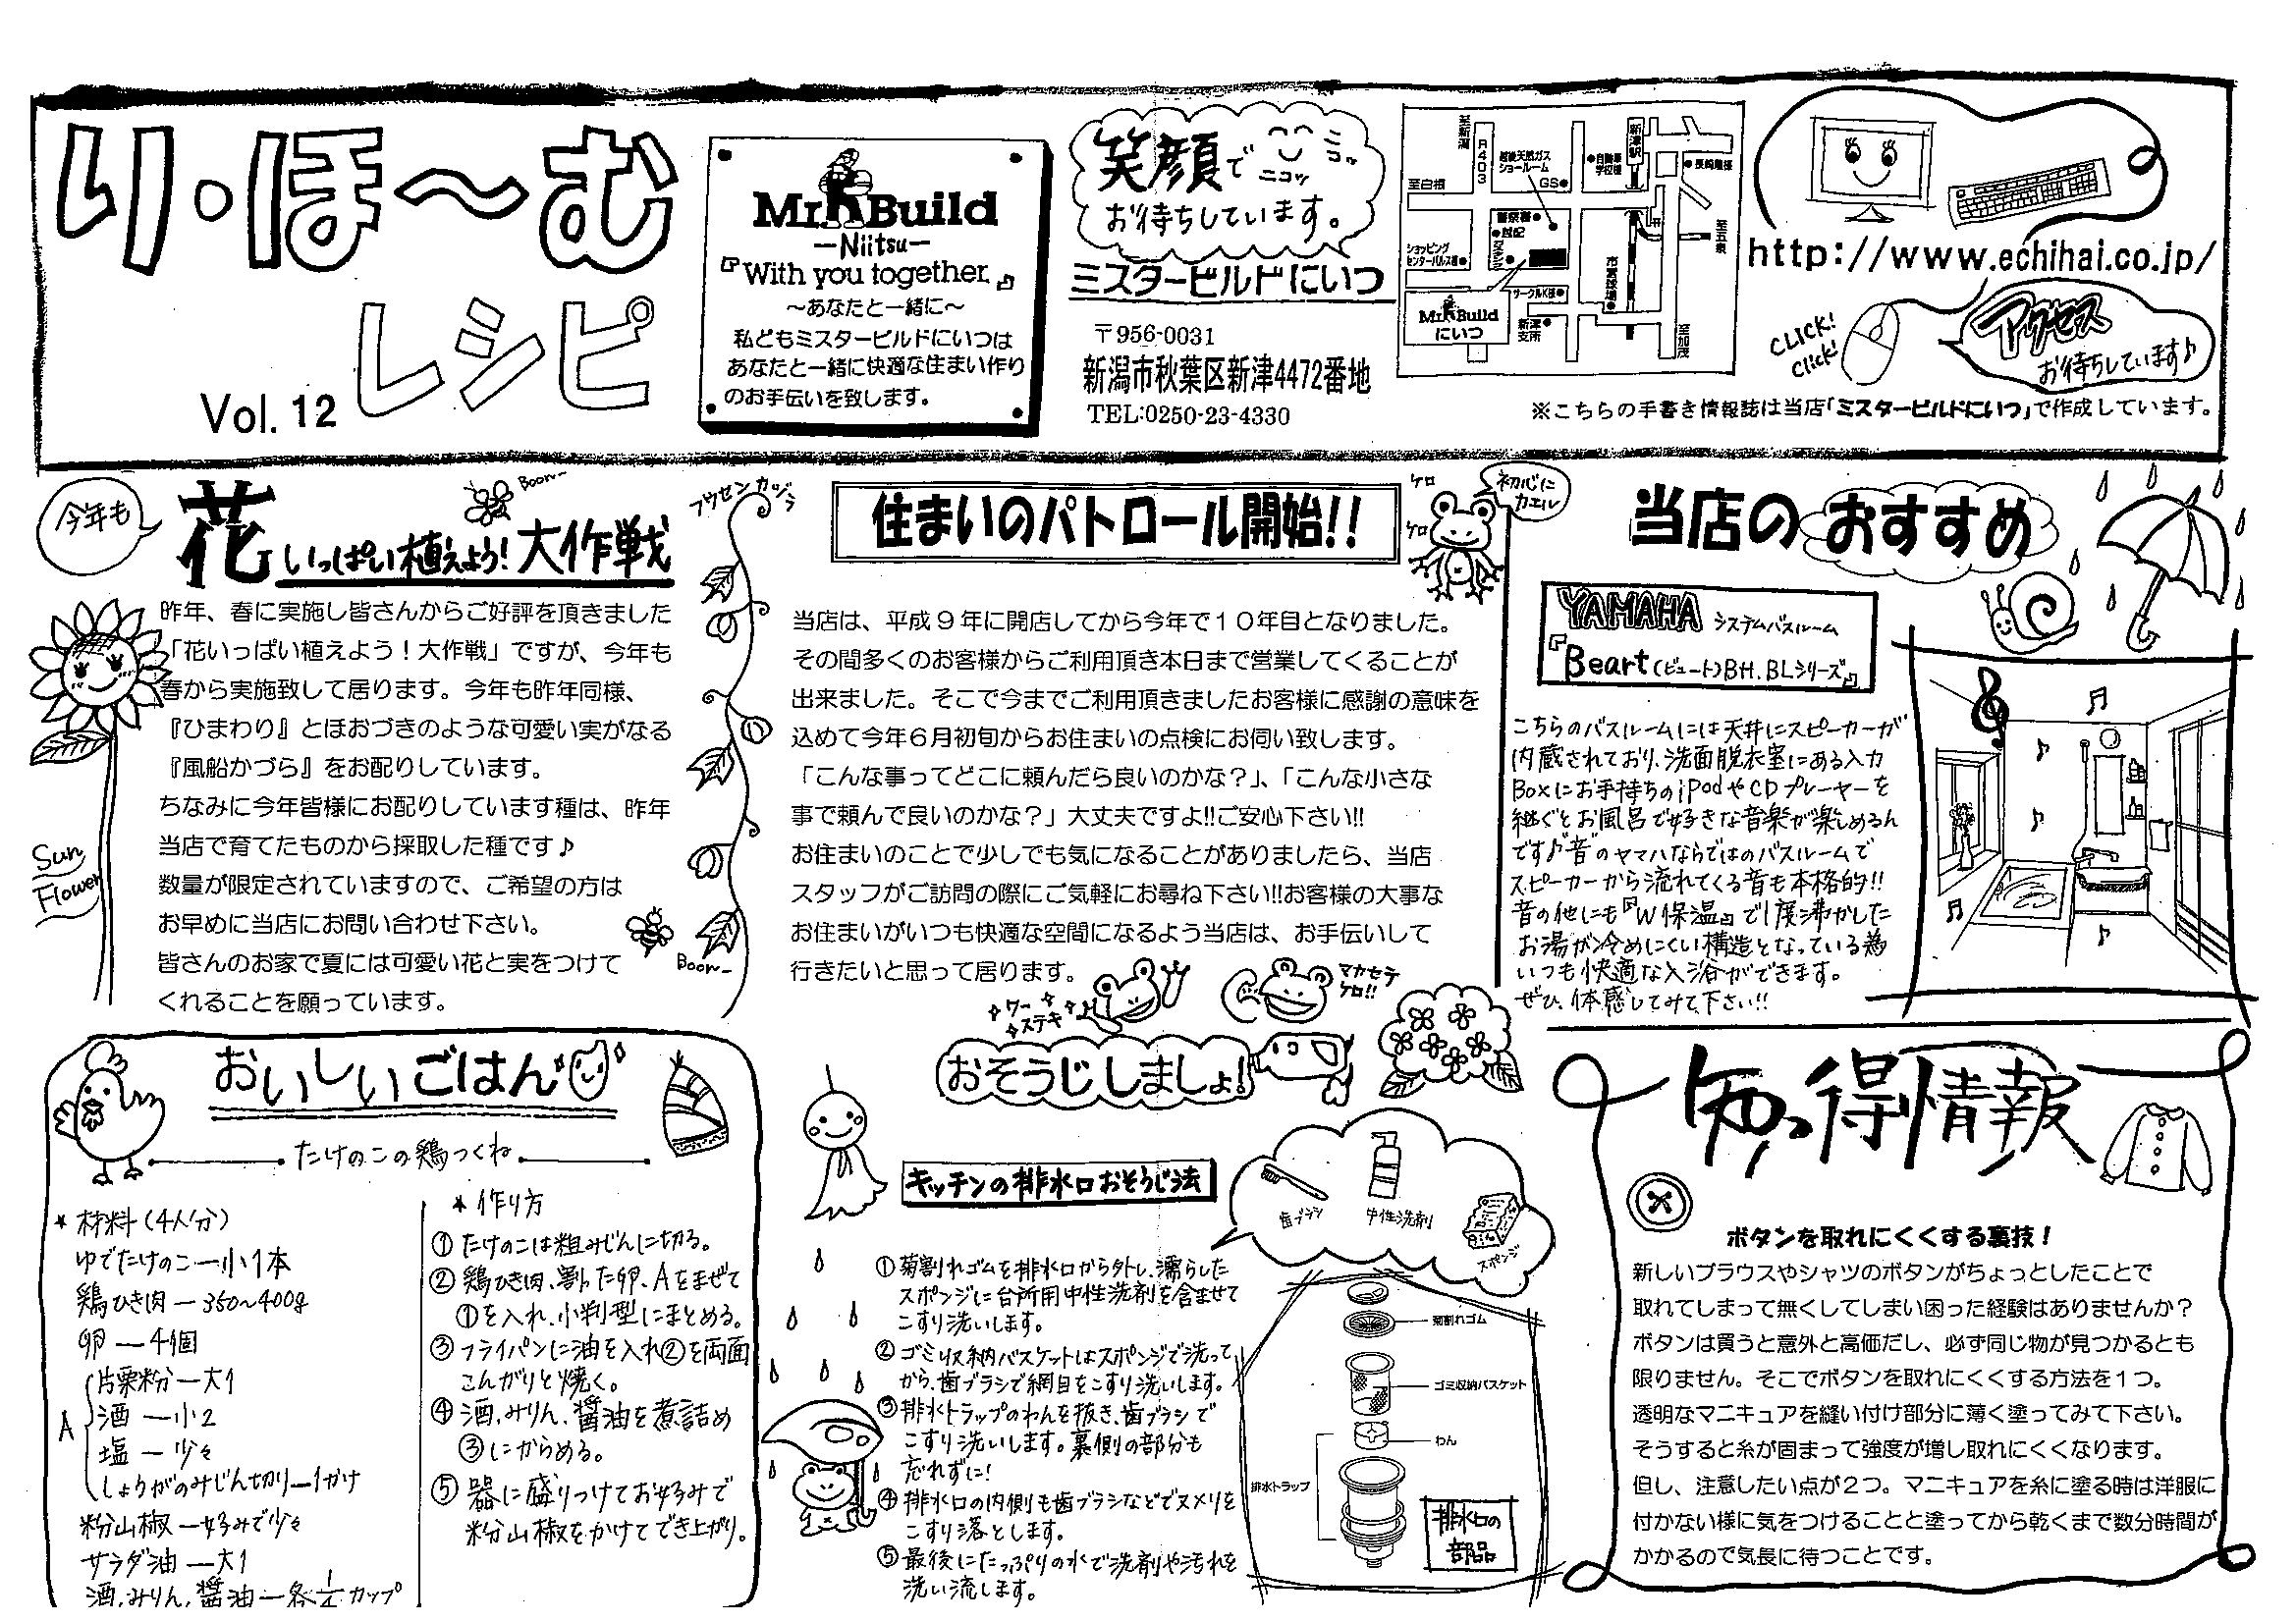 り・ほ～む
レシピ
Vol. 12
Mr. Build
－Niitsu－
『With you together.』
～あなたと一緒に～
私どもミスタービルドにいつは
あなたと一緒に快適な住まい作り
のお手伝いを致します。
笑顔で
ニコッ
ニコッ
お待ちしています。
ミスタービルドにいつ
〒956-0031
新潟市秋葉区新津4472番地
TEL:0250-23-4330
至新潟
R403
越後天然ガス
ショールーム
GS●
●自動車
学校様
新津駅
●長崎屋様
至白根
警察署●
至五泉
ショッピング
センターパルス様●
市営球場●
サークルK様●
Mr. Build
にいつ
新津
支所
至加茂
http://www.echihai.co.jp/
CLICK!
Click!
アクセス
お待ちしています♪
※こちらの手書き情報誌は当店「ミスタービルドにいつ」で作成しています。
今年も
花いっぱい植えよう!大作戦
Boon~
フウセンカヅラ
昨年、春に実施し皆さんからご好評を頂きました
「花いっぱい植えよう！大作戦」ですが、今年も
春から実施致して居ります。今年も昨年同様、
『ひまわり』とほおづきのような可愛い実がなる
『風船かづら』をお配りしています。
ちなみに今年皆様にお配りしています種は、昨年
当店で育てたものから採取した種です♪
数量が限定されていますので、ご希望の方は
お早めに当店にお問い合わせ下さい。
皆さんのお家で夏には可愛い花と実をつけて
くれることを願っています。
Sun
Flower
Boon~
住まいのパトロール開始!!
ケロ
ケロ
初心に
カエル
当店は、平成９年に開店してから今年で１０年目となりました。
その間多くのお客様からご利用頂き本日まで営業してくることが
出来ました。そこで今までご利用頂きましたお客様に感謝の意味を
込めて今年６月初旬からお住まいの点検にお伺い致します。
「こんな事ってどこに頼んだら良いのかな？」、「こんな小さな
事で頼んで良いのかな？」大丈夫ですよ!!ご安心下さい!!
お住まいのことで少しでも気になることがありましたら、当店
スタッフがご訪問の際にご気軽にお尋ね下さい!!お客様の大事な
お住まいがいつも快適な空間になるよう当店は、お手伝いして
行きたいと思って居ります。
ワー
ステキ
マカセテ
ケロ!!
当店のおすすめ
YAMAHA システムバスルーム
『Beart(ビュート)BH.BLシリーズ』
こちらのバスルームには天井にスピーカーが
内蔵されており、洗面脱衣室にある入力
Boxにお手持ちのiPodやCDプレーヤーを
継ぐとお風呂で好きな音楽が楽しめるん
です♪音のヤマハならではのバスルームで
スピーカーから流れてくる音も本格的!!
音の他にも『W保温』で1度沸かした
お湯が冷めにくい構造となっている為
いつも快適な入浴ができます。
ぜひ、体感してみて下さい!!
おいしいごはん
たけのこの鶏つくね
* 材料(4人分)
ゆでたけのこ ― 小1本
鶏ひき肉 ― 350～400g
卵 ― 4個
A
片栗粉 ― 大1
酒 ― 小2
塩 ― 少々
しょうがのみじん切り ― 1かけ
粉山椒 ― 好みで少々
サラダ油 ― 大1
酒、みりん、醤油 ― 各1/4カップ
* 作り方
①たけのこは粗みじんに切る。
②鶏ひき肉、割った卵、Aをまぜて
①を入れ、小判型にまとめる。
③フライパンに油を入れ②を両面
こんがりと焼く。
④酒、みりん、醤油を煮詰め
③にからめる。
⑤器に盛りつけてお好みで
粉山椒をかけてでき上がり。
おそうじしましょ!
キッチンの排水口おそうじ法
歯ブラシ
中性洗剤
スポンジ
①菊割れゴムを排水口から外し、濡らした
スポンジに台所用中性洗剤を含ませて
こすり洗いします。
②ゴミ収納バスケットはスポンジで洗って
から、歯ブラシで網目をこすり洗いします。
③排水トラップのわんを抜き、歯ブラシで
こすり洗いします。裏側の部分も
忘れずに!
④排水口の内側も歯ブラシなどでヌメリを
こすり落とします。
⑤最後にたっぷりの水で洗剤や汚れを
洗い流します。
菊割れゴム
ゴミ収納バスケット
わん
排水トラップ
排水口の
部品
知っ得情報
ボタンを取れにくくする裏技！
新しいブラウスやシャツのボタンがちょっとしたことで
取れてしまって無くしてしまい困った経験はありませんか？
ボタンは買うと意外と高価だし、必ず同じ物が見つかるとも
限りません。そこでボタンを取れにくくする方法を１つ。
透明なマニキュアを縫い付け部分に薄く塗ってみて下さい。
そうすると糸が固まって強度が増し取れにくくなります。
但し、注意したい点が２つ。マニキュアを糸に塗る時は洋服に
付かない様に気をつけることと塗ってから乾くまで数分時間が
かかるので気長に待つことです。